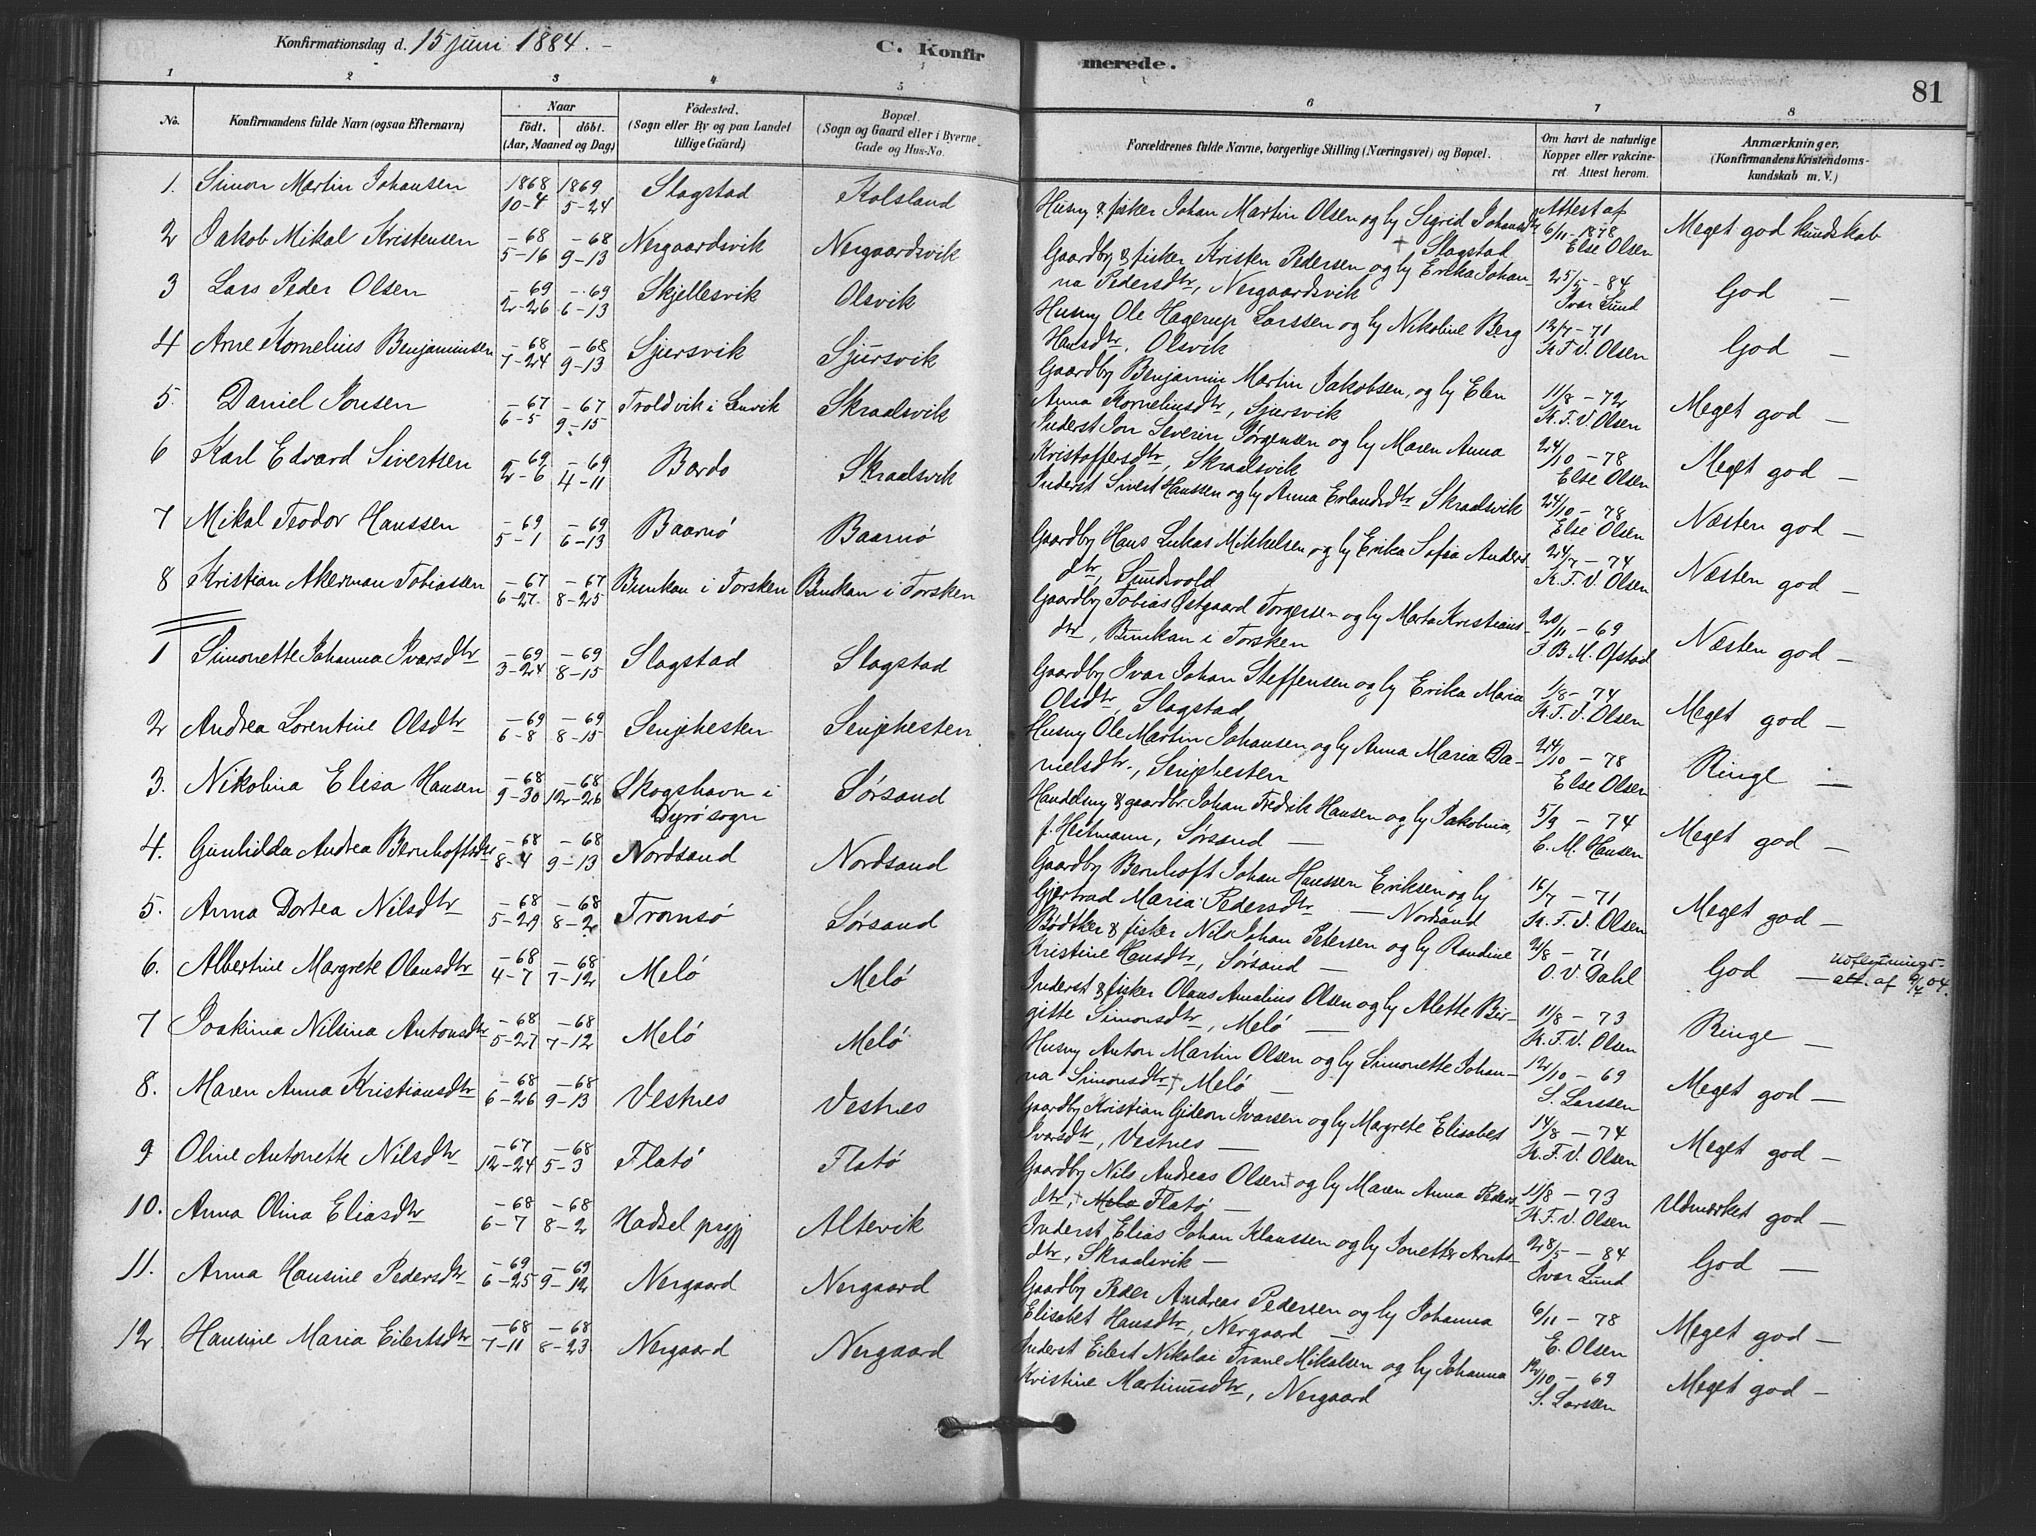 Konfirmationsdag d. 15 juni 1884. –
C. Konfirmerede.
81
1 2 3 4 5 6 7 8
No. Konfirmandens fulde Navn (ogsaa Efternavn) Naar födt. döbt. (Aar, Maaned og Dag) Födested. (Sogn eller By og paa Landet tillige Gaard) Bopæl. (Sogn og Gaard eller i Byerne Gade og Hus-No. Forældrenes fulde Navne, borgerlige Stilling (Næringsvei) og Bopæl. Om havt de naturlige Kopper eller vakcineret. Attest herom. Anmærkninger. (Konfirmandens Kristendomskundskab m. V.)
1. Simon Martin Johansen 1868 10-4 1869 5-24 Slagstad Kolsland Husm & fisker Johan Martin Olsen og hu Sigrid Johansdtr + Slagstad Attest af 6/11-1878 Else Olsen Meget god kundskab
2 Jakob Mikal Kristensen -68 5-16 -68 9-13 Nergaardsvik Nergaardsvik Gaardbr & fisker Kristen Pedersen og hu Erika Johanna Pedersdtr, Nergaardsvik 25/5-84 Ivar Lund God –
3 Lars Peder Olsen -69 2-26 -69 6-13 Skjellesvik Olsvik Husm Ole Hagerup Larssen og hu Nikoline Berg Hansdtr, Olsvik 12/7-71 K.F.V. Olsen God –
4 Arne Kornelius Benjaminsen -68 7-24 -68 9-13 Sjursvik Sjursvik Gaardbr Benjamin Martin Jakobsen, og hu Elen Anna Korneliusdtr, Sjursvik 11/8-72 K.F.V. Olsen Meget god –
5. Daniel Jonsen -67 6-5 -67 9-15 Troldvik i Lenvik Skraalsvik Inderst Jon Severin Jørgensen og hu Maren Anna Kristoffersdtr, Skraalsvik 24/10-78 Else Olsen Meget god –
6 Karl Edvard Sivertsen -69 2-6 -69 4-11 Bardo Skraalsvik Inderst Sivert Hanssen og hu Anna Erlandsdtr Skraalsvik 24/10-78 Else Olsen Næsten god –
7 Mikal Teodor Hanssen -69 5-1 -69 6-13 Baarnö Baarnö Gaardbr Hans Lukas Mikkelsen og hu Erika Sofia Andersdtr, Sundsvold 24/7-74 K.F.V. Olsen Næsten god –
8 Kristian Akerman Tobiassen -67 6-27 -67 8-25 Bunkan i Torsken Bunkan i Torsken Gaardbr Tobias Østgaard Torgersen og hu Marta Kristiansdtr, Bunkan i Torsken 20/11-69 J.B.M. Ofstad Næsten god –
1 Simonette Johanna Ivarsdtr -69 3-24 -69 8-15 Slagstad Slagstad Gaardbr Ivar Johan Steffensen og hu Erika Maria Olsdtr, Slagstad 1/8-74 K.F.V. Olsen Meget god –
2 Andrea Lorentine Olsdtr -69 6-8 -69 8-15 Senjehesten Senjehesten Husm Ole Martin Johansen og hu Anna Maria Danielsdtr, Senjehesten 24/10-78 Else Olsen Ringe –
3. Nikolina Elisa Hansen -68 9-30 -68 12-26 Skogshavn i Dyrö sogn Sörsand Handelsm & gaardbr. Johan Fredrik Hansen og hu Jakobina, f. Heitmann, Sørsand – 5/9-74 C.M. Hansen Meget god –
4. Gunhilda Andrea Bernhoftsdtr -68 8-4 -68 9-13 Nordsand Nordsand Gaardbr Bernhoft Johan Hanssen Eriksen og hu Gjertrud Maria Pedersdtr – Nordsand 16/7-71 K.F.V. Olsen Meget god –
5. Anna Dortea Nilsdtr -68 5-29 -68 8-2 Tromsö Sørsand Bödtker & fisker Nils Johan Petersen og hu Randine Kristine Hansdtr, Sørsand – 2/8-71 O.V. Dahl God – Udflytnings-att. af 9/4 04.
6. Albertine Margrete Olausdtr -68 4-7 -68 7-12 Melö Melö Inderst & fisker Olaus Amalius Olsen og hu Alette Birgitte Simonsdtr, Melö – 11/8-73 K.F.V. Olsen Ringe –
7 Joakima Nilsina Antonsdtr -68 5-27 -68 7-12 Melö Melö Husm Anton Martin Olsen og hu Simonette Johanna Simonsdtr + Melö – 12/10-69 S. Larssen Meget god –
8. Maren Anna Kristiansdtr -68 6-26 -68 9-13 Vestnes Vestnes Gaardbr Kristian Gideon Ivarsen og hu Margrete Elisabet Ivarsdtr, Vestnes – 14/8-74 K.F.V. Olsen Meget god –
9 Oline Antonette Nilsdtr -67 12-24 -68 5-3 Flatö Flatö Gaardbr Nils Andreas Olsen + og hu Maren Anna Pedersdtr, + Melö Flatö – 11/8-73 K.F.V. Olsen Udmærket god –
10. Anna Olina Eliasdtr -68 6-7 -68 8-2 Hadsel prgj Altevik Inderst Elias Johan Klaussen og hu Jonette Arntsdtr, Skraalsvik – 28/5-84 Ivar Lund God –
11. Anna Hansine Pedersdtr -69 6-25 -69 9-12 Nergaard Nergaard Gaardbr Peder Andreas Pedersen og hu Johanna Elisabet Hansdtr, Nergaard – 6/11-78 E. Olsen Meget god –
12. Hansine Maria Eilertsdtr -68 7-11 -68 8-23 Nergaard Nergaard Inderst Eilert Nikolai Trane Mikalsen og hu Johanna Kristine Martinusdtr, Nergaard 12/10-69 S. Larssen Meget god –